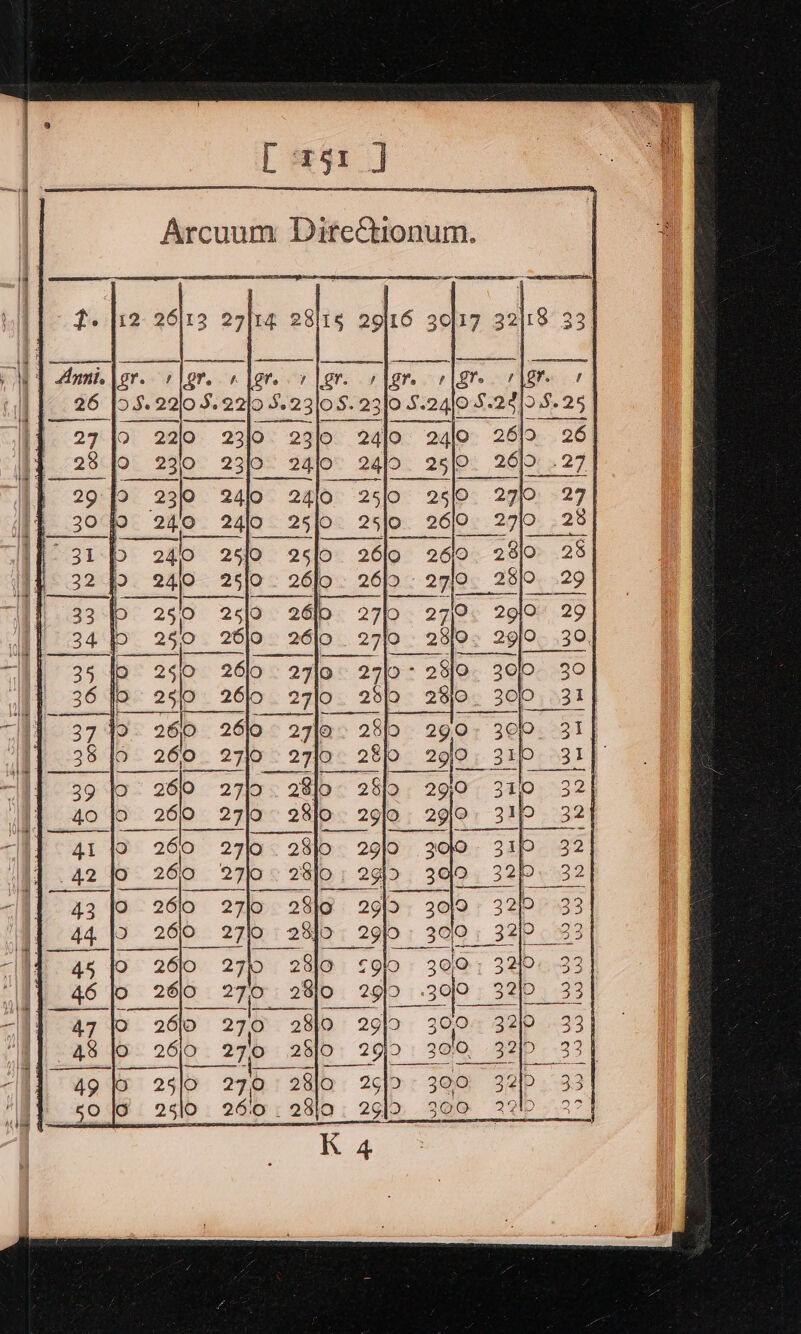 [ 151 ]
Arcuum Directionum.
f. 12 26 13 27 14 28 15 29 16 30 17 32 18 33
Anni. gr. ′ gr. ′ gr. ′ gr. ′ gr. ′ gr. ′ gr. ′
26 0 S. 22 0 S. 22 0 S. 23 0 S. 23 0 S. 24 0 S. 25 0 S. 25
27 0 22 0 23 0 23 0 24 0 24 0 26 0 26
28 0 23 0 23 0 24 0 24 0 25 0 26 0 27
29 0 23 0 24 0 24 0 25 0 25 0 27 0 27
30 0 24 0 24 0 25 0 25 0 26 0 27 0 28
31 0 24 0 25 0 25 0 26 0 26 0 28 0 28
32 0 24 0 25 0 26 0 26 0 27 0 28 0 29
33 0 25 0 25 0 26 0 27 0 27 0 29 0 29
34 0 25 0 26 0 26 0 27 0 28 0 29 0 30
35 0 25 0 26 0 27 0 27 0 28 0 30 0 30
36 0 25 0 26 0 27 0 28 0 28 0 30 0 31
37 0 26 0 26 0 27 0 28 0 29 0 30 0 31
38 0 26 0 27 0 27 0 28 0 29 0 31 0 31
39 0 26 0 27 0 28 0 28 0 29 0 31 0 32
40 0 26 0 27 0 28 0 29 0 29 0 31 0 32
41 0 26 0 27 0 28 0 29 0 30 0 31 0 32
42 0 26 0 27 0 28 0 29 0 30 0 32 0 32
43 0 26 0 27 0 28 0 29 0 30 0 32 0 33
44 0 26 0 27 0 28 0 29 0 30 0 32 0 33
45 0 26 0 27 0 28 0 29 0 30 0 32 0 33
46 0 26 0 27 0 28 0 29 0 30 0 32 0 33
47 0 26 0 27 0 28 0 29 0 30 0 32 0 33
48 0 26 0 27 0 28 0 29 0 30 0 32 0 33
49 0 25 0 27 0 28 0 29 0 30 0 32 0 33
50 0 25 0 26 0 28 0 29 0 30 0
K 4